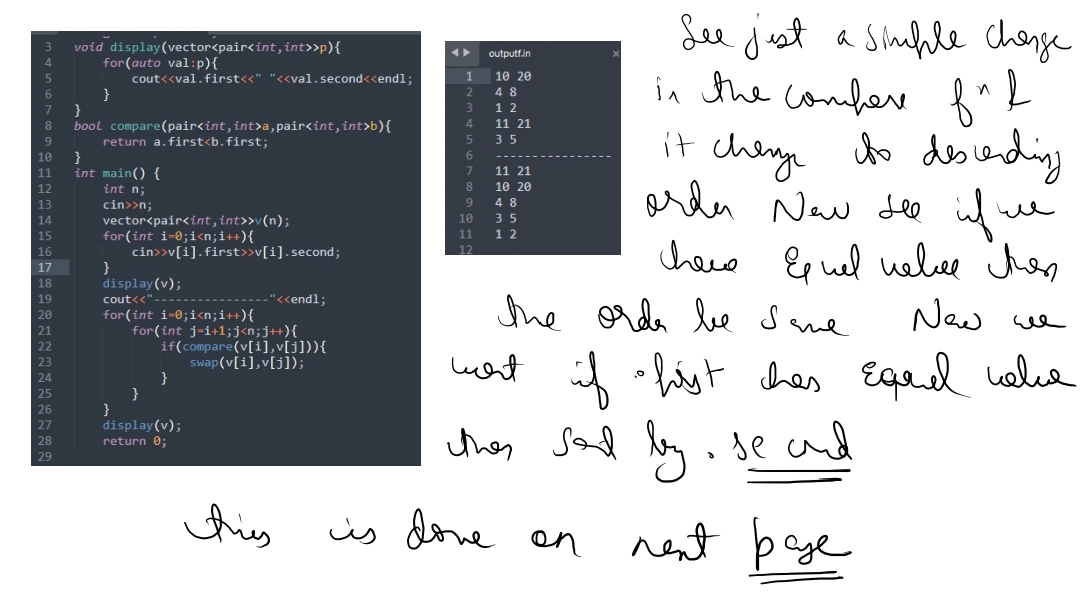 3 void display(vector<pair<int,int>>p){
4 for(auto val:p){
5 cout<<val.first<<" "<<val.second<<endl;
6 }
7 }
8 bool compare(pair<int,int>a,pair<int,int>b){
9 return a.first<b.first;
10 }
11 int main() {
12 int n;
13 cin>>n;
14 vector<pair<int,int>>v(n);
15 for(int i=0;i<n;i++){
16 cin>>v[i].first>>v[i].second;
17 }
18 display(v);
19 cout<<"----------------"<<endl;
20 for(int i=0;i<n;i++){
21 for(int j=i+1;j<n;j++){
22 if(compare(v[i],v[j])){
23 swap(v[i],v[j]);
24 }
25 }
26 }
27 display(v);
28 return 0;
29
outputf.in ×
1 10 20
2 4 8
3 1 2
4 11 21
5 3 5
6 ----------------
7 11 21
8 10 20
9 4 8
10 3 5
11 1 2
12
See just a simple change
in the compare fⁿ &
it change to descending
order Now see if we
have Equal value then
the order be same Now we
want if .first has Equal value
then sort by .second
this is done on next page